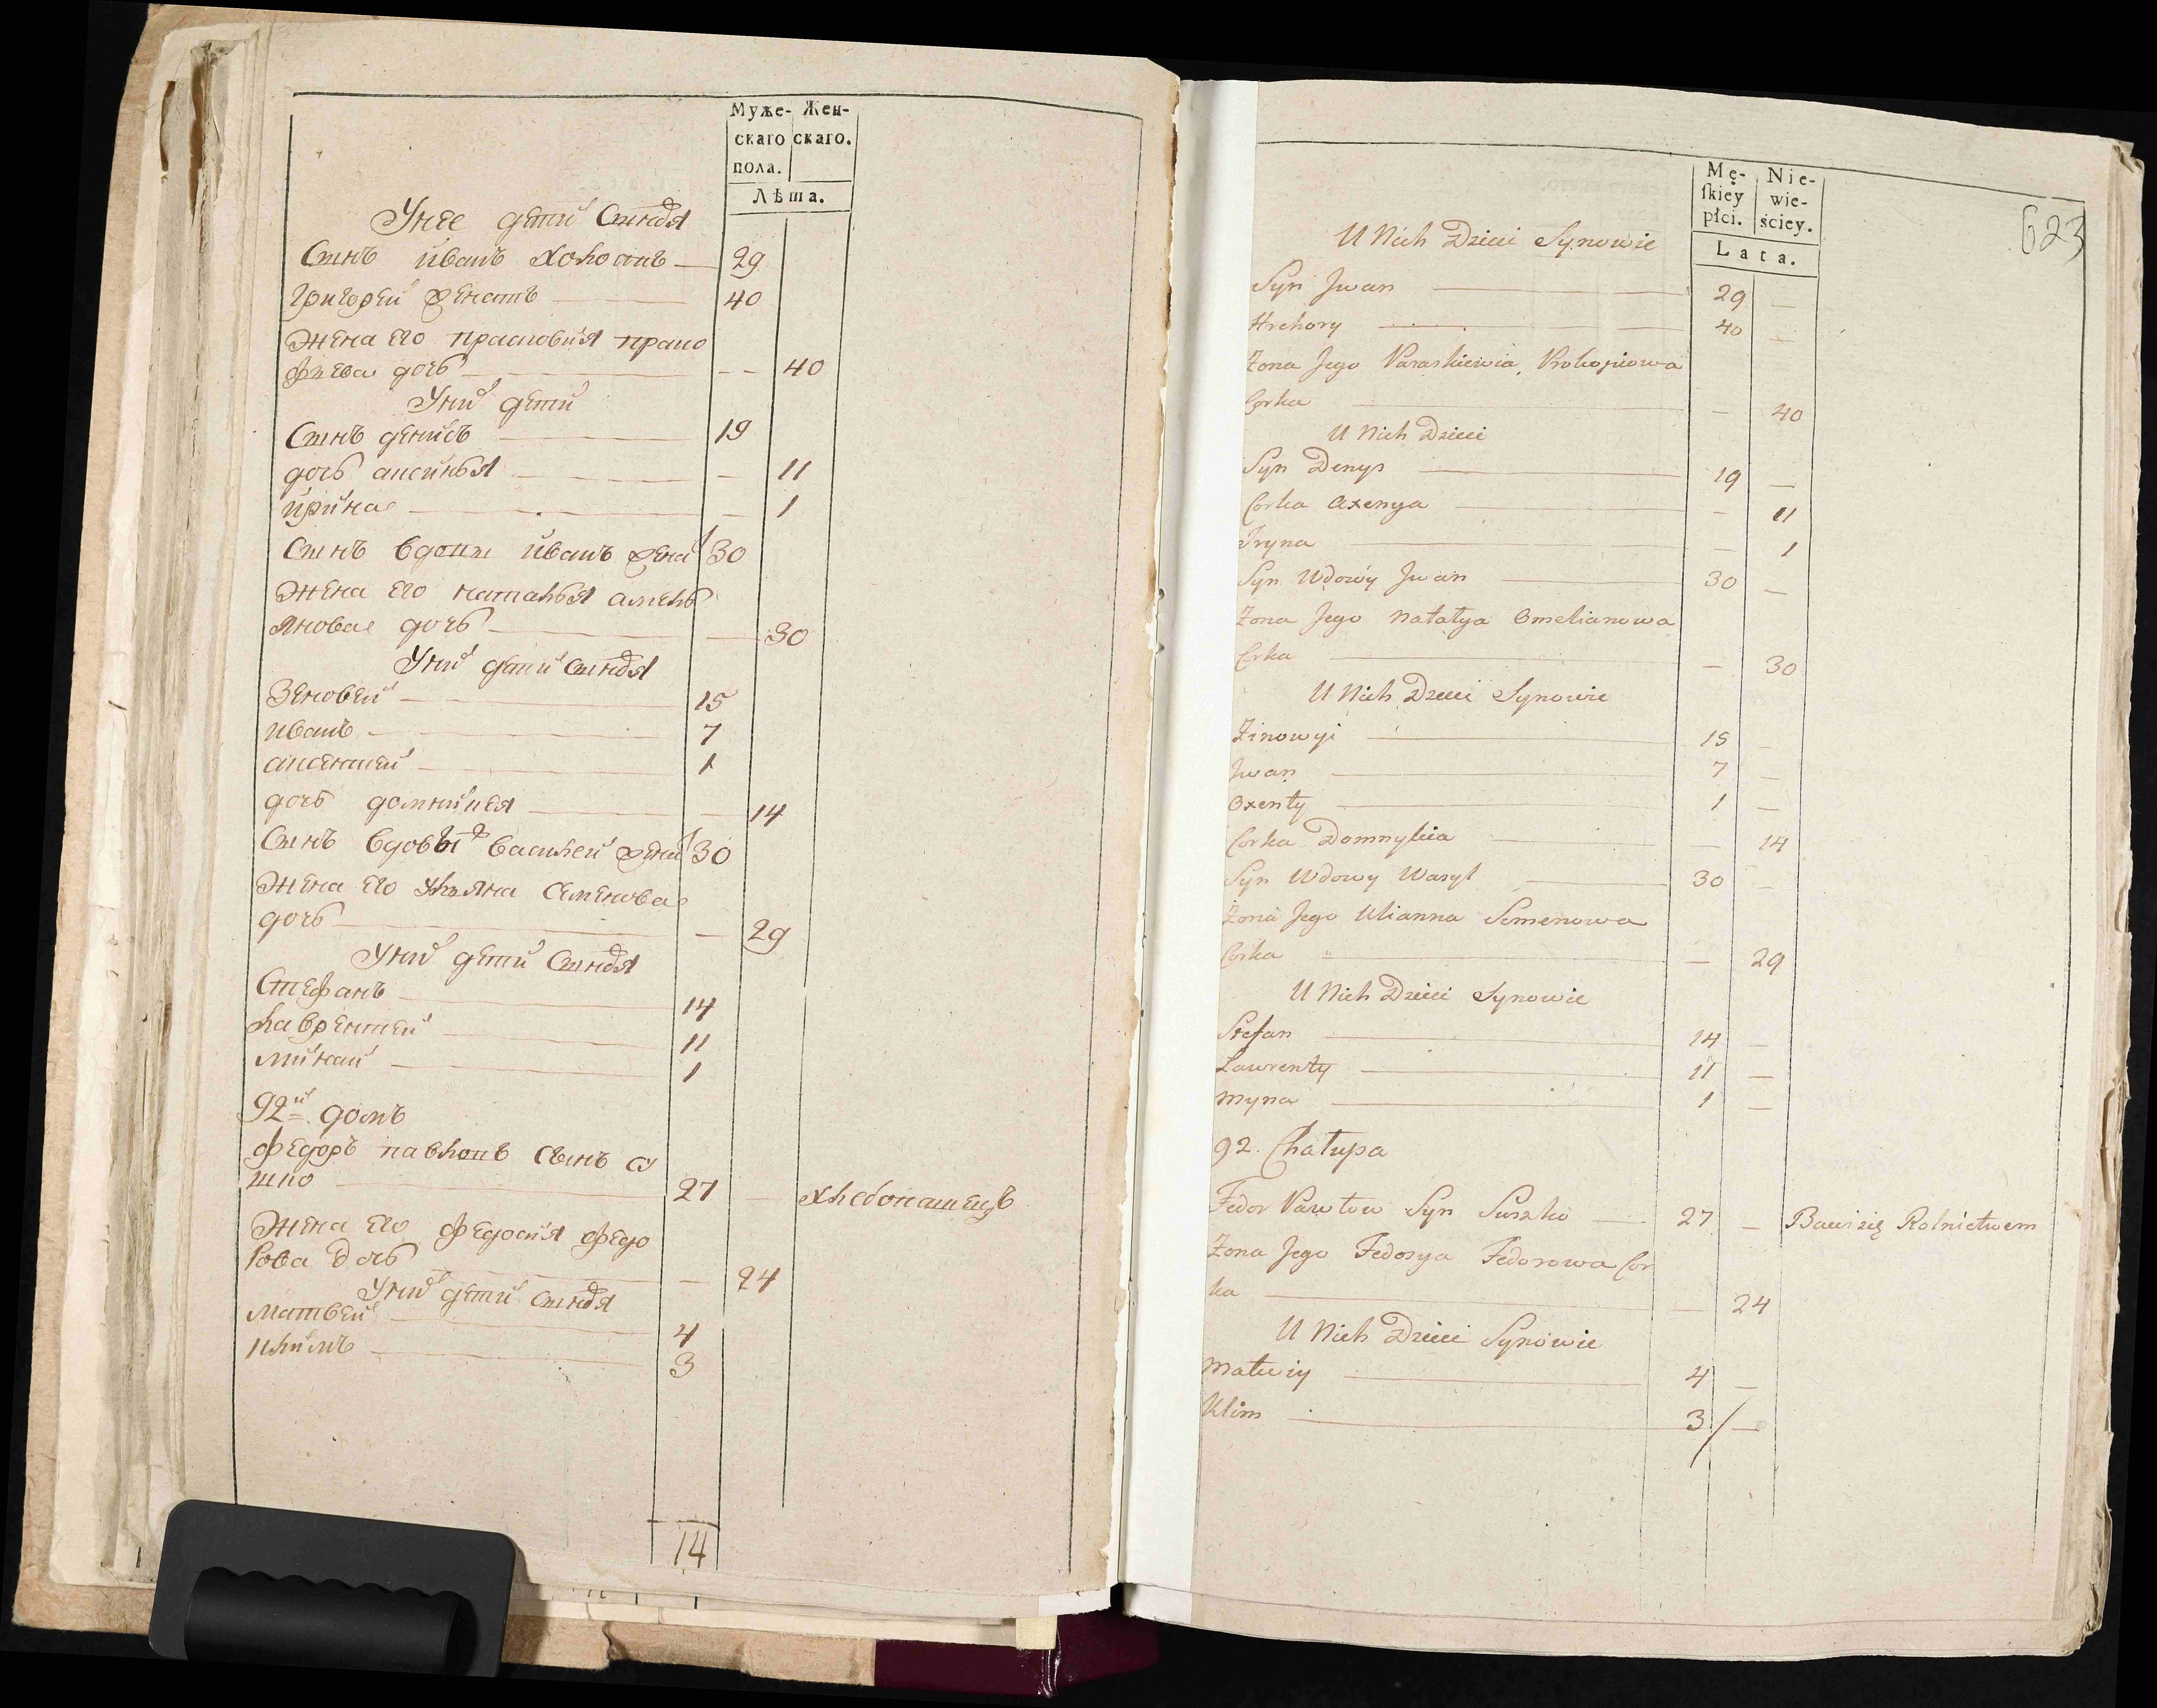 Муже- Жен-
скаго скаго.
пола.
Лѣта.
Унее дети Сынов̾я
Сынъ иванъ холостъ 29
григорей женатъ 40
Жена его прасковия проко
фъева дочь 40
Унихъ дети
Сынъ денисъ 19
дочь аксинья 11
ирина 1
Сынъ вдовы иванъ жена 30
Жена его наталья амель
янова дочь 30
Унихъ дети сыновя
Зеновей 15
иванъ 7
аксентей 1
дочь домникея 14
Сынъ вдовы василей жена 30
Жена его ульяна Семенова
дочь 29
Унихъ дети Сыновя
Стефанъ 14
лаврентей 11
минай 1
92й домъ
федоръ павловъ сынъ су
шко 27 хлебопашецъ
Жена его федосия федо
рова дочь 24
Унихъ дети сыновя
матвей 4
климъ 3
14
Mę- Nie-
ſkiey wie-
płci. ściey.
Lata.
623
U Nich Dzieci Synowie
Syn Jwan 29
Hrehory 40
Żona Jego Paraskiewia Prokopiowa
Corka 40
U Nich Dzieci
Syn Denys 19
Corka Axenya 11
Jryna 1
Syn Wdowy Jwan 30
Żona Jego Natalya Omelianowa
Crka 30
U Nich Dzieci Synowie
Zinowyi 15
Jwan 7
Oxenty 1
Corka Domnykia 14
Syn Wdowy Wasyl 30
Żona Jego Ulianna Semenowa
Corka 29
U Nich Dzieci Synowie
Stefan 14
Lawrenty 11
Myna 1
92. Chałupa
Fedor Pawłow Syn Suszko 27 Bawi się Rolnictwem
Żona Jego Fedosya Fedorowa Cor
ka 24
U Nich Dzieci Synowie
Matwiy 4
Klim 3